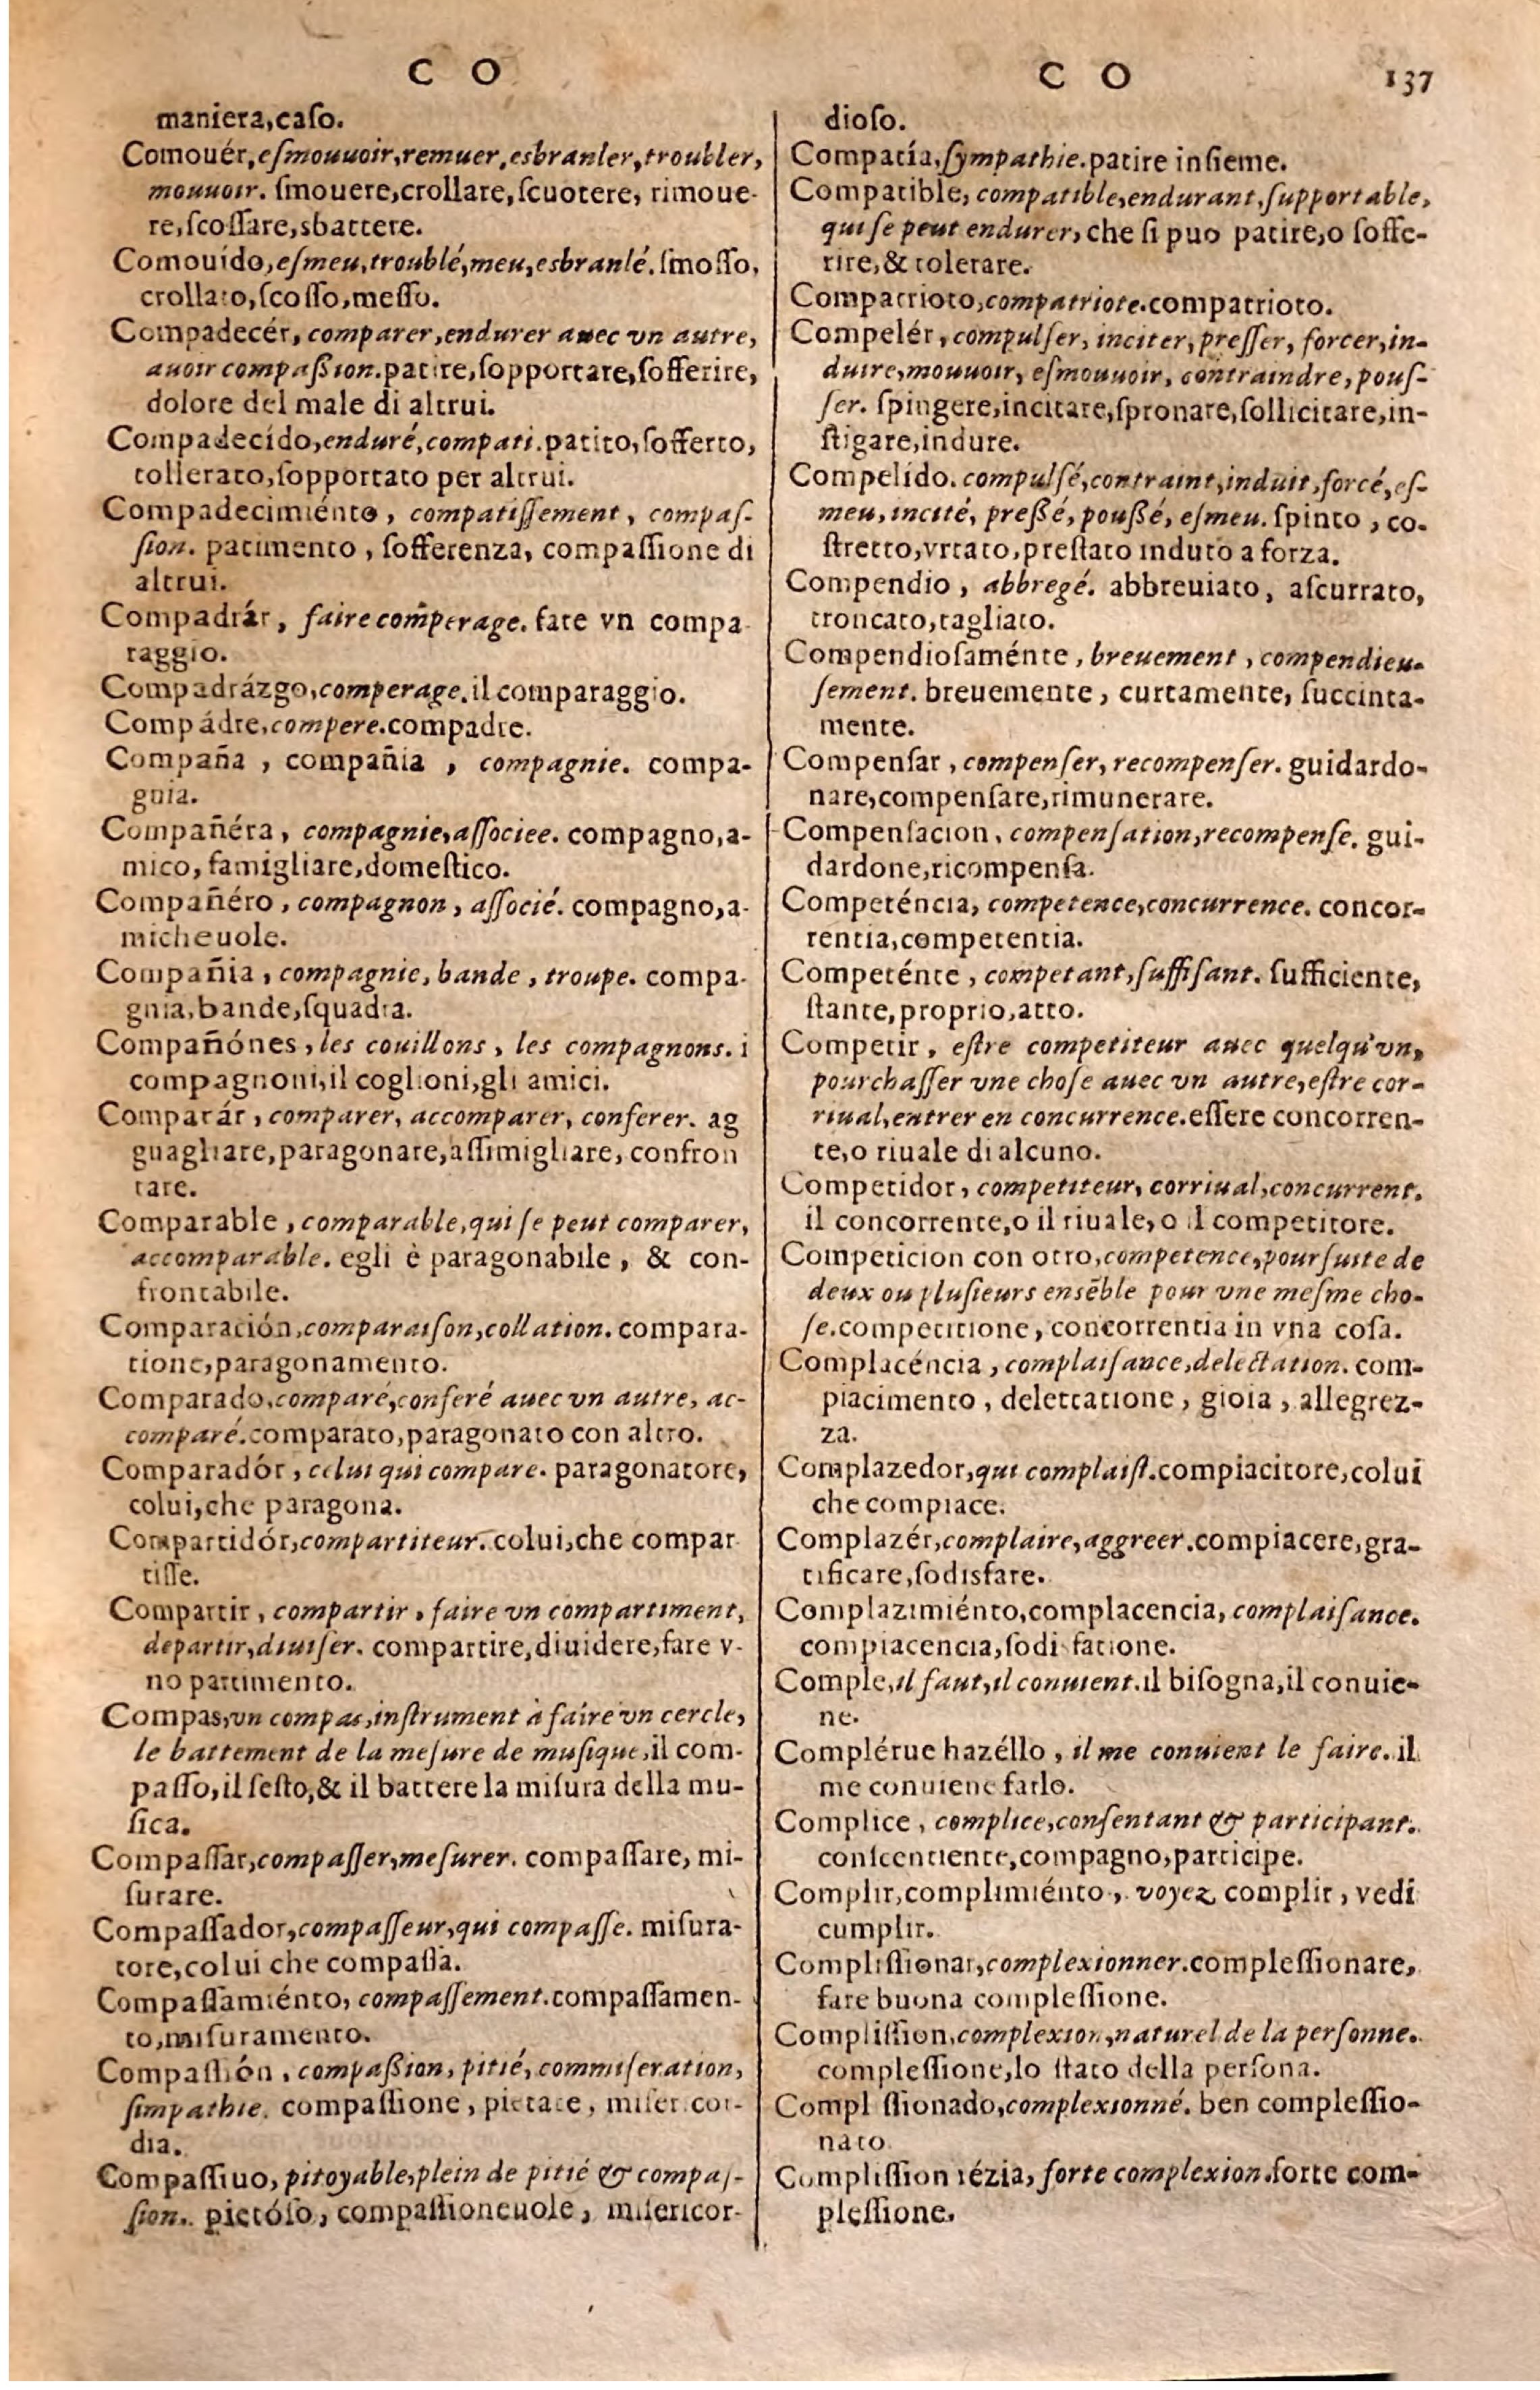 C O
maniera,caſo.
Comouér,eſmouuoir,remuer,esbranler,troubler,
mouuoir. ſmouere,crollare,ſcuotere, rimoue-
re,ſcoſſare,sbattere.
Comouido,eſmeu,troublé,meu,esbranlé.ſmoſſo,
crollato,ſcoſſo,meſſo.
Compadecér, comparer,endurer auec vn autre,
auoir compaßion.patire,ſopportare,ſofferire,
dolore del male di altrui.
Compadecído,enduré,compati.patito,ſofferto,
tollerato,ſopportato per altrui.
Compadecimiénto, compatiſſement, compaſ-
ſion. patimento, ſofferenza, compaſſione di
altrui.
Compadrár, faire comperage. fare vn compa
raggio.
Compadrázgo,comperage.il comparaggio.
Compádre,compere.compadre.
Compaña, compañia, compagnie. compa-
gnia.
Compañéra, compagnie,aſſociee. compagno,a-
mico, famigliare,domeſtico.
Compañéro, compagnon, aſſocié. compagno,a-
micheuole.
Compañia, compagnie, bande, troupe. compa-
gnia,bande,ſquadra.
Compañónes, les couillons, les compagnons. i
compagnoni,il coglioni,gli amici.
Comparár, comparer, accomparer, conferer. ag
guagliare,paragonare,aſſimigliare, confron
tare.
Comparable, comparable,qui ſe peut comparer,
accomparable. egli è paragonabile, & con-
frontabile.
Comparación,comparaiſon,collation. compara-
tione,paragonamento.
Comparado,comparé,conferé auec vn autre, ac-
comparé.comparato,paragonato con altro.
Comparadór, celui qui compare. paragonatore,
colui,che paragona.
Compartidór,compartiteur. colui,che compar
tiſſe.
Compartir, compartir, faire vn compartiment,
departir,diuiſer. compartire,diuidere,fare v-
no partimento.
Compas,vn compas,inſtrument à faire vn cercle,
le battement de la meſure de muſique,il com-
paſſo,il ſeſto,& il battere la miſura della mu-
ſica.
Compaſſar,compaſſer,meſurer. compaſſare, mi-
ſurare.
Compaſſador,compaſſeur,qui compaſſe. miſura-
tore,colui che compaſſa.
Compaſſamiénto, compaſſement.compaſſamen-
to,miſuramento.
Compaſſión, compaßion, pitié, commiſeration,
ſimpathie. compaſſione, pietate, miſericor-
dia.
Compaſſiuo, pitoyable,plein de pitié & compaſ-
ſion. pietóſo, compaſſioneuole, miſericor-
C O 137
dioſo.
Compatía,ſympathie.patire inſieme.
Compatible, compatible,endurant,ſupportable,
qui ſe peut endurer, che ſi puo patire,o ſoffe-
rire,& tolerare.
Compatrioto,compatriote.compatrioto.
Compelér, compulſer, inciter, preſſer, forcer,in-
duire,mouuoir, eſmouuoir, contraindre, pouſ-
ſer. ſpingere,incitare,ſpronare,ſollicitare,in-
ſtigare,indure.
Compelído. compulſé,contraint,induit,forcé,eſ-
meu, incité, preßé, poußé, eſmeu. ſpinto, co-
ſtretto,vrtato,preſtato induto a forza.
Compendio, abbregé. abbreuiato, aſcurrato,
troncato,tagliato.
Compendioſaménte, breuement, compendieu-
ſement. breuemente, curtamente, ſuccinta-
mente.
Compenſar, compenſer, recompenſer. guidardo-
nare,compenſare,rimunerare.
Compenſacion, compenſation,recompenſe. gui-
dardone,ricompenſa.
Competéncia, competence,concurrence. concor-
rentia,competentia.
Competénte, competant,ſuffiſant. ſufficiente,
ſtante,proprio,atto.
Competir, eſtre competiteur auec quelqu'vn,
pourchaſſer vne choſe auec vn autre,eſtre cor-
riual,entrer en concurrence.eſſere concorren-
te,o riuale di alcuno.
Competidor, competiteur, corriual,concurrent.
il concorrente,o il riuale,o il competitore.
Competicion con otro,competence,pourſuite de
deux ou pluſieurs enſēble pour vne meſme cho-
ſe.competitione, concorrentia in vna coſa.
Complacéncia, complaiſance,delectation. com-
piacimento, delettatione, gioia, allegrez-
za.
Complazedor,qui complaiſt.compiacitore,colui
che compiace.
Complazér,complaire,aggreer.compiacere,gra-
tificare,ſodisfare.
Complazimiénto,complacencia, complaiſance.
compiacencia,ſodisfatione.
Comple,il faut,il conuient.il biſogna,il conuie-
ne.
Complérue hazéllo, il me conuient le faire. il
me conuiene farlo.
Complice, complice,conſentant & participant.
conſcentiente,compagno,participe.
Complir,complimiénto, voyez complir, vedi
cumplir.
Compliſſionar,complexionner.compleſſionare,
fare buona compleſſione.
Compliſſion,complexion,naturel de la perſonne.
compleſſione,lo ſtato della perſona.
Compl ſſionado,complexionné. ben compleſſio-
nato
Compliſſion rézia, forte complexion.forte com-
pleſſione.